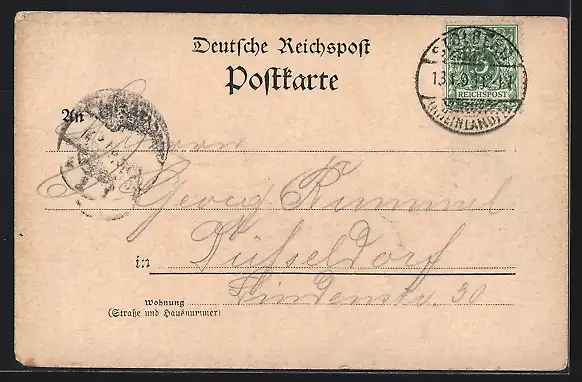 Deutsche Reichspost
Postkarte
STOLBERG
13
(RHEINLAND)
5
REICHSPOST
An
Herrn
Georg Rummel
in Düsseldorf
Lindenstr. 30
Wohnung
(Straße und Hausnummer)